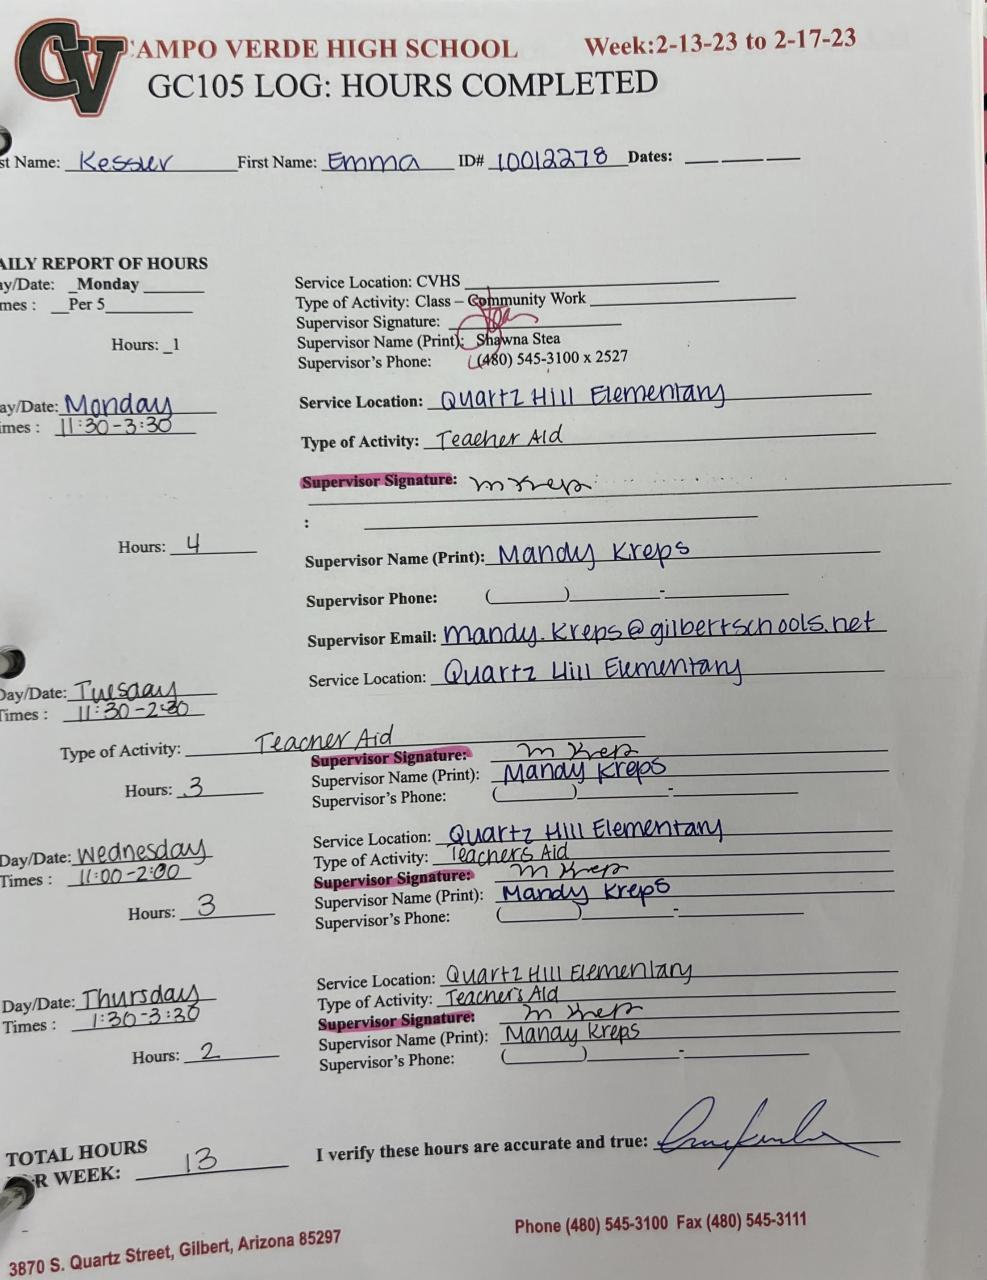 CV CAMPO VERDE HIGH SCHOOL Week:2-13-23 to 2-17-23
GC105 LOG: HOURS COMPLETED
st Name: Kessler First Name: Emma ID# 10012278 Dates:
AILY REPORT OF HOURS
ay/Date: _Monday
mes : Per 5
Hours: _1
Service Location: CVHS
Type of Activity: Class – Community Work
Supervisor Signature:
Supervisor Name (Print): Shawna Stea
Supervisor's Phone: (480) 545-3100 x 2527
ay/Date: Monday
imes : 11:30-3:30
Hours: 4
Service Location: Quartz Hill Elementary
Type of Activity: Teacher Aid
Supervisor Signature: M Krep
:
Supervisor Name (Print): Mandy Kreps
Supervisor Phone: ( ) -
Supervisor Email: mandy.kreps@gilbertschools.net
Day/Date: Tuesday
Times : 11:30-2:30
Service Location: Quartz Hill Elementary
Type of Activity: Teacher Aid
Hours: 3
Supervisor Signature: M Krep
Supervisor Name (Print): Mandy Kreps
Supervisor's Phone: ( ) -
Day/Date: Wednesday
Times : 11:00-2:00
Hours: 3
Service Location: Quartz Hill Elementary
Type of Activity: Teachers Aid
Supervisor Signature: M Krep
Supervisor Name (Print): Mandy Kreps
Supervisor's Phone: ( ) -
Day/Date: Thursday
Times : 1:30-3:30
Hours: 2
Service Location: Quartz Hill Elementary
Type of Activity: Teacher's Aid
Supervisor Signature: M Krep
Supervisor Name (Print): Mandy Kreps
Supervisor's Phone: ( ) -
TOTAL HOURS
R WEEK: 13
I verify these hours are accurate and true:
3870 S. Quartz Street, Gilbert, Arizona 85297
Phone (480) 545-3100 Fax (480) 545-3111